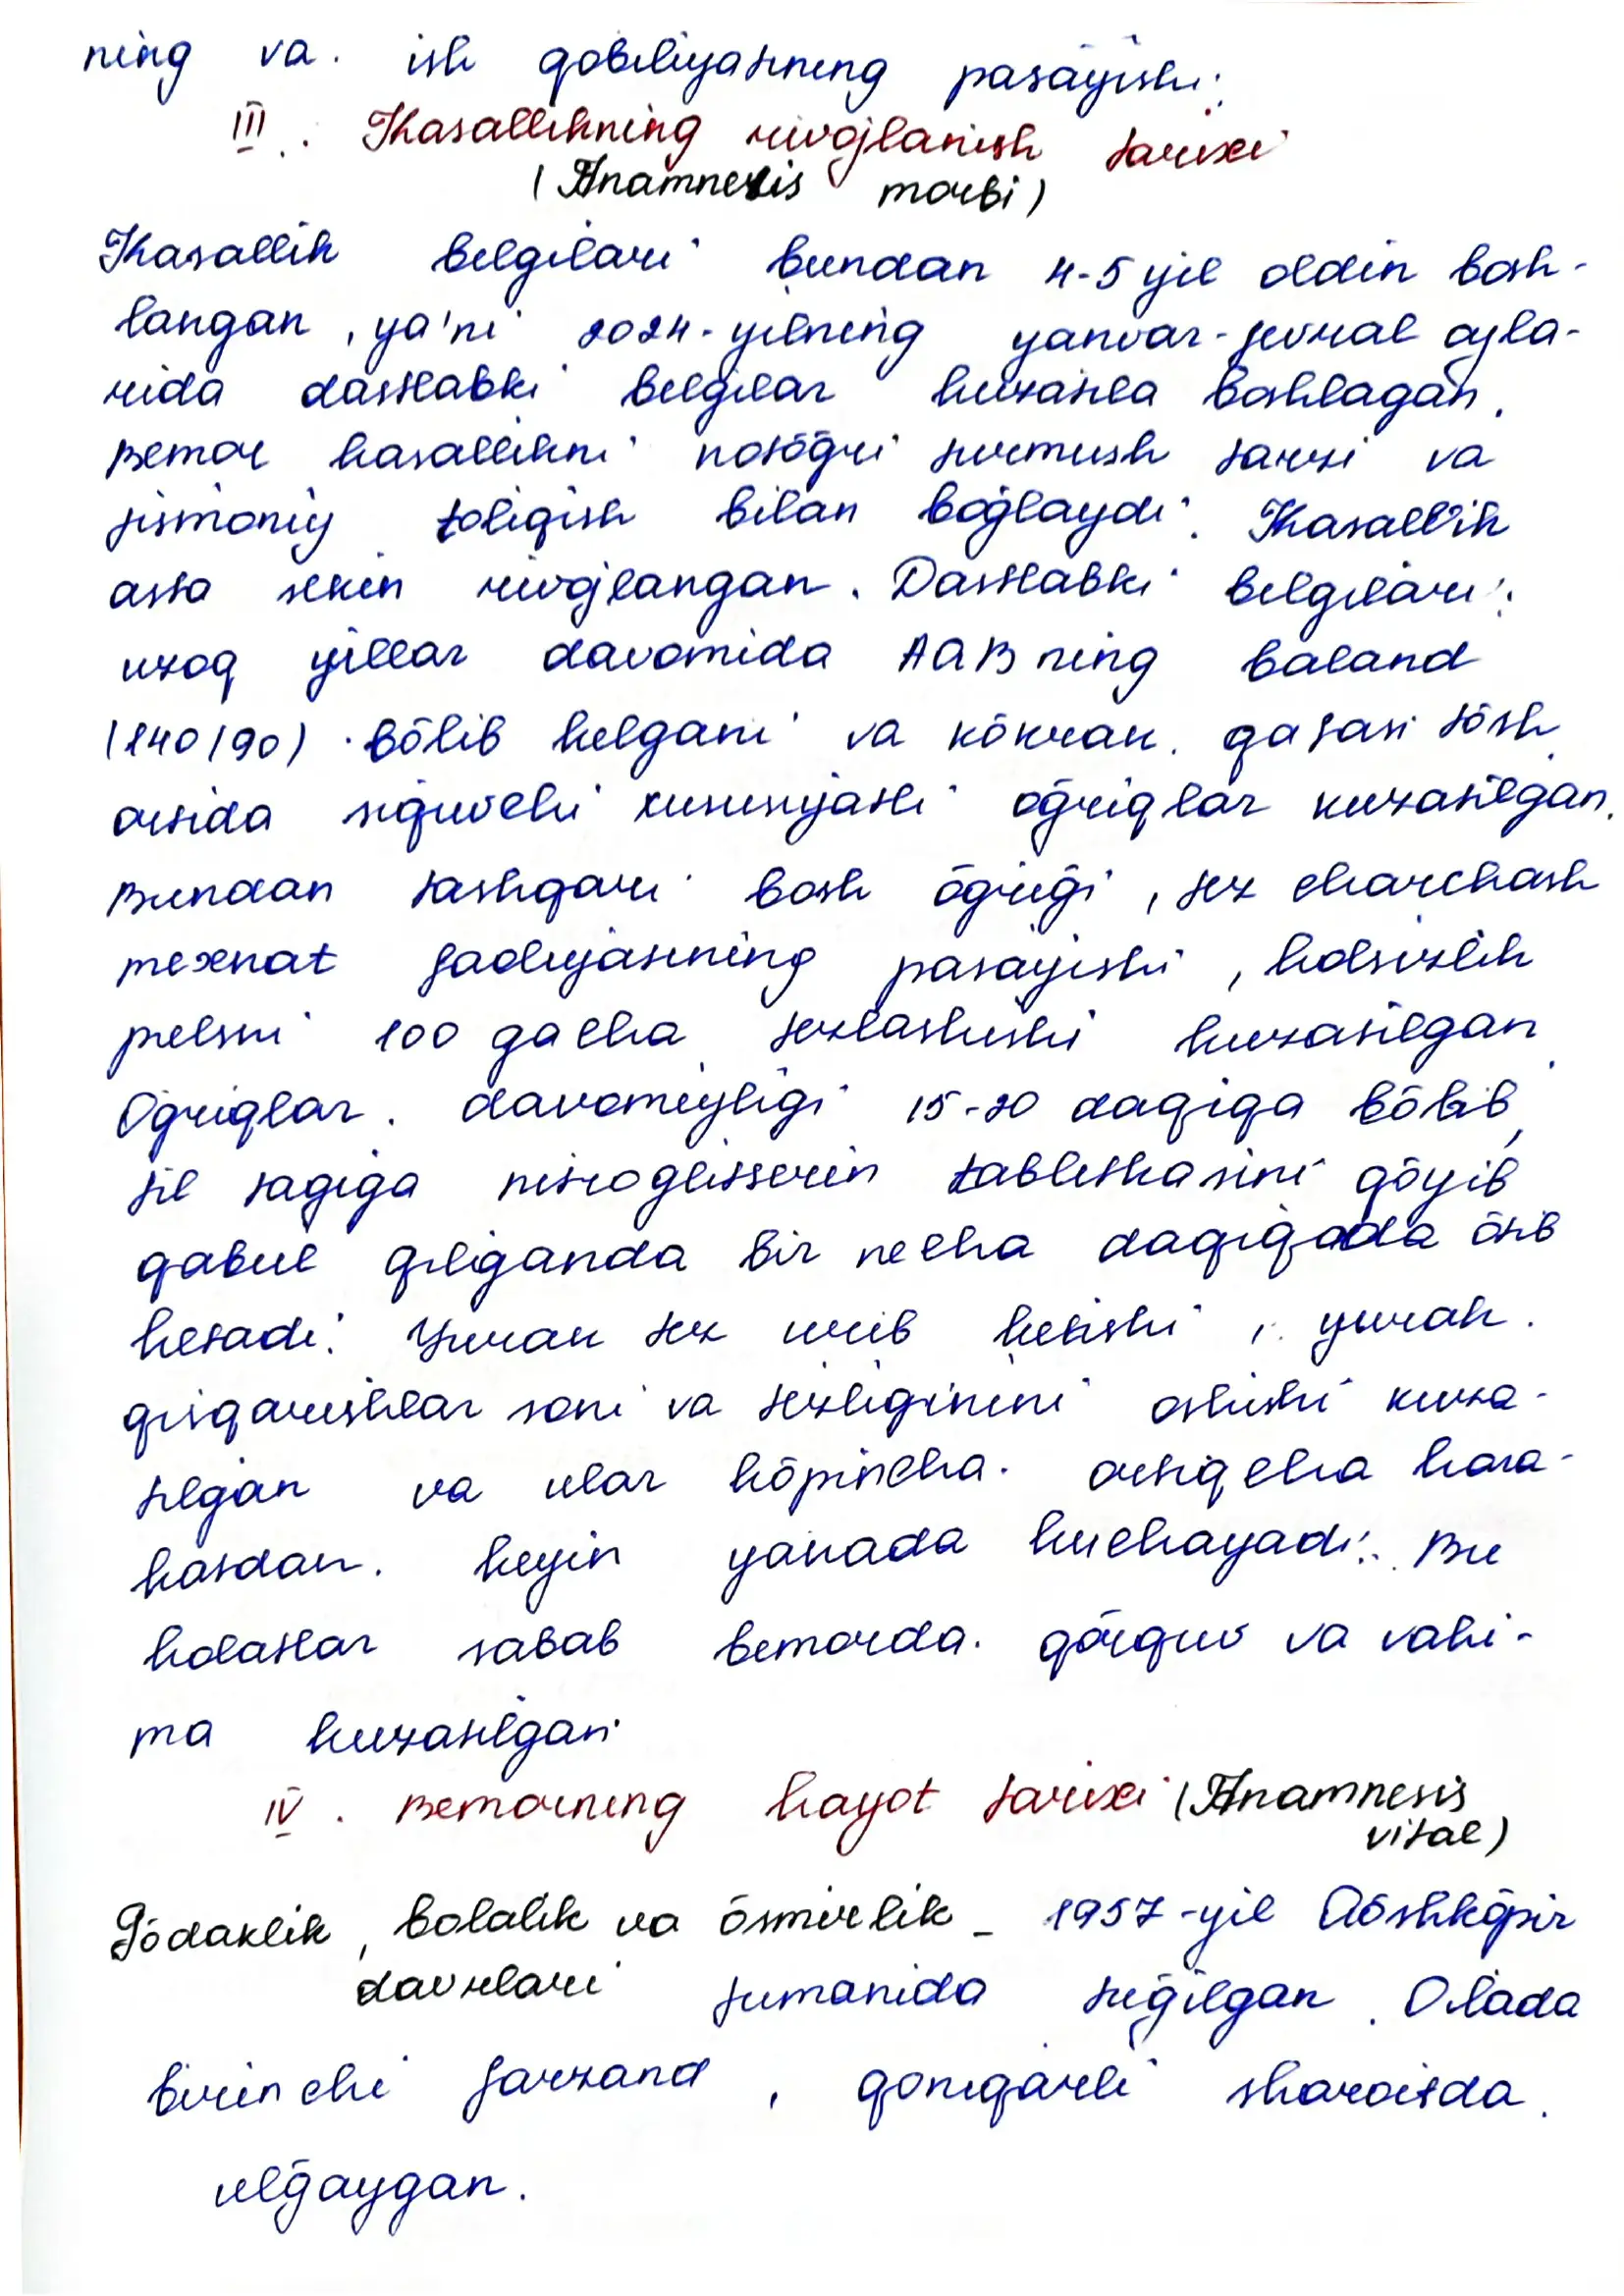 ning va ish qobiliyatining pasayishi.
III. Kasallikning rivojlanish tarixi
(Anamnesis morbi)
Kasallik belgilari bundan 4-5 yil oldin bosh-
langan, ya'ni 2024-yilning yanvar-fevral oyla-
rida dastlabki belgilar kuzatila boshlagan.
Bemor kasallikni notõğri turmush tarzi va
jismoniy toliqish bilan boğlaydi. Kasallik
asta sekin rivojlangan. Dastlabki belgilari:
uzoq yillar davomida AQB ning baland
(140/90) bõlib kelgani va kõkrak qafasi tõsh
ortida siquvchi xususiyatli oğriqlar kuzatilgan.
Bundan tashqari bosh õgriği, tez charchash
mexnat faoliyatining pasayishi, holsizlik
pulsni 100 gacha tezlashishi kuzatilgan.
Ogriqlar davomiyligi 15-20 daqiqa bõlib,
til tagiga nitroglitserin tabletkasini qõyib
qabul qilganda bir necha daqiqada õtib
ketadi. Yurak tez urib ketishi, yurak
qisqarishlar soni va tezliginini oshishi kuza-
tilgan va ular kõpincha ortiqcha hara-
katdan keyin yanada kuchayadi. Bu
holatlar sabab bemorda qõrquv va vahi-
ma kuzatilgan
IV. Bemorning hayot tarixi (Anamnesis
vitae)
Gõdaklik, bolalik va õsmirlik - 1957-yil Qõshkõpir
davrlari tumanida tuğilgan. Oilada
birinchi farzand, qoniqarli sharoitda
ulğaygan.